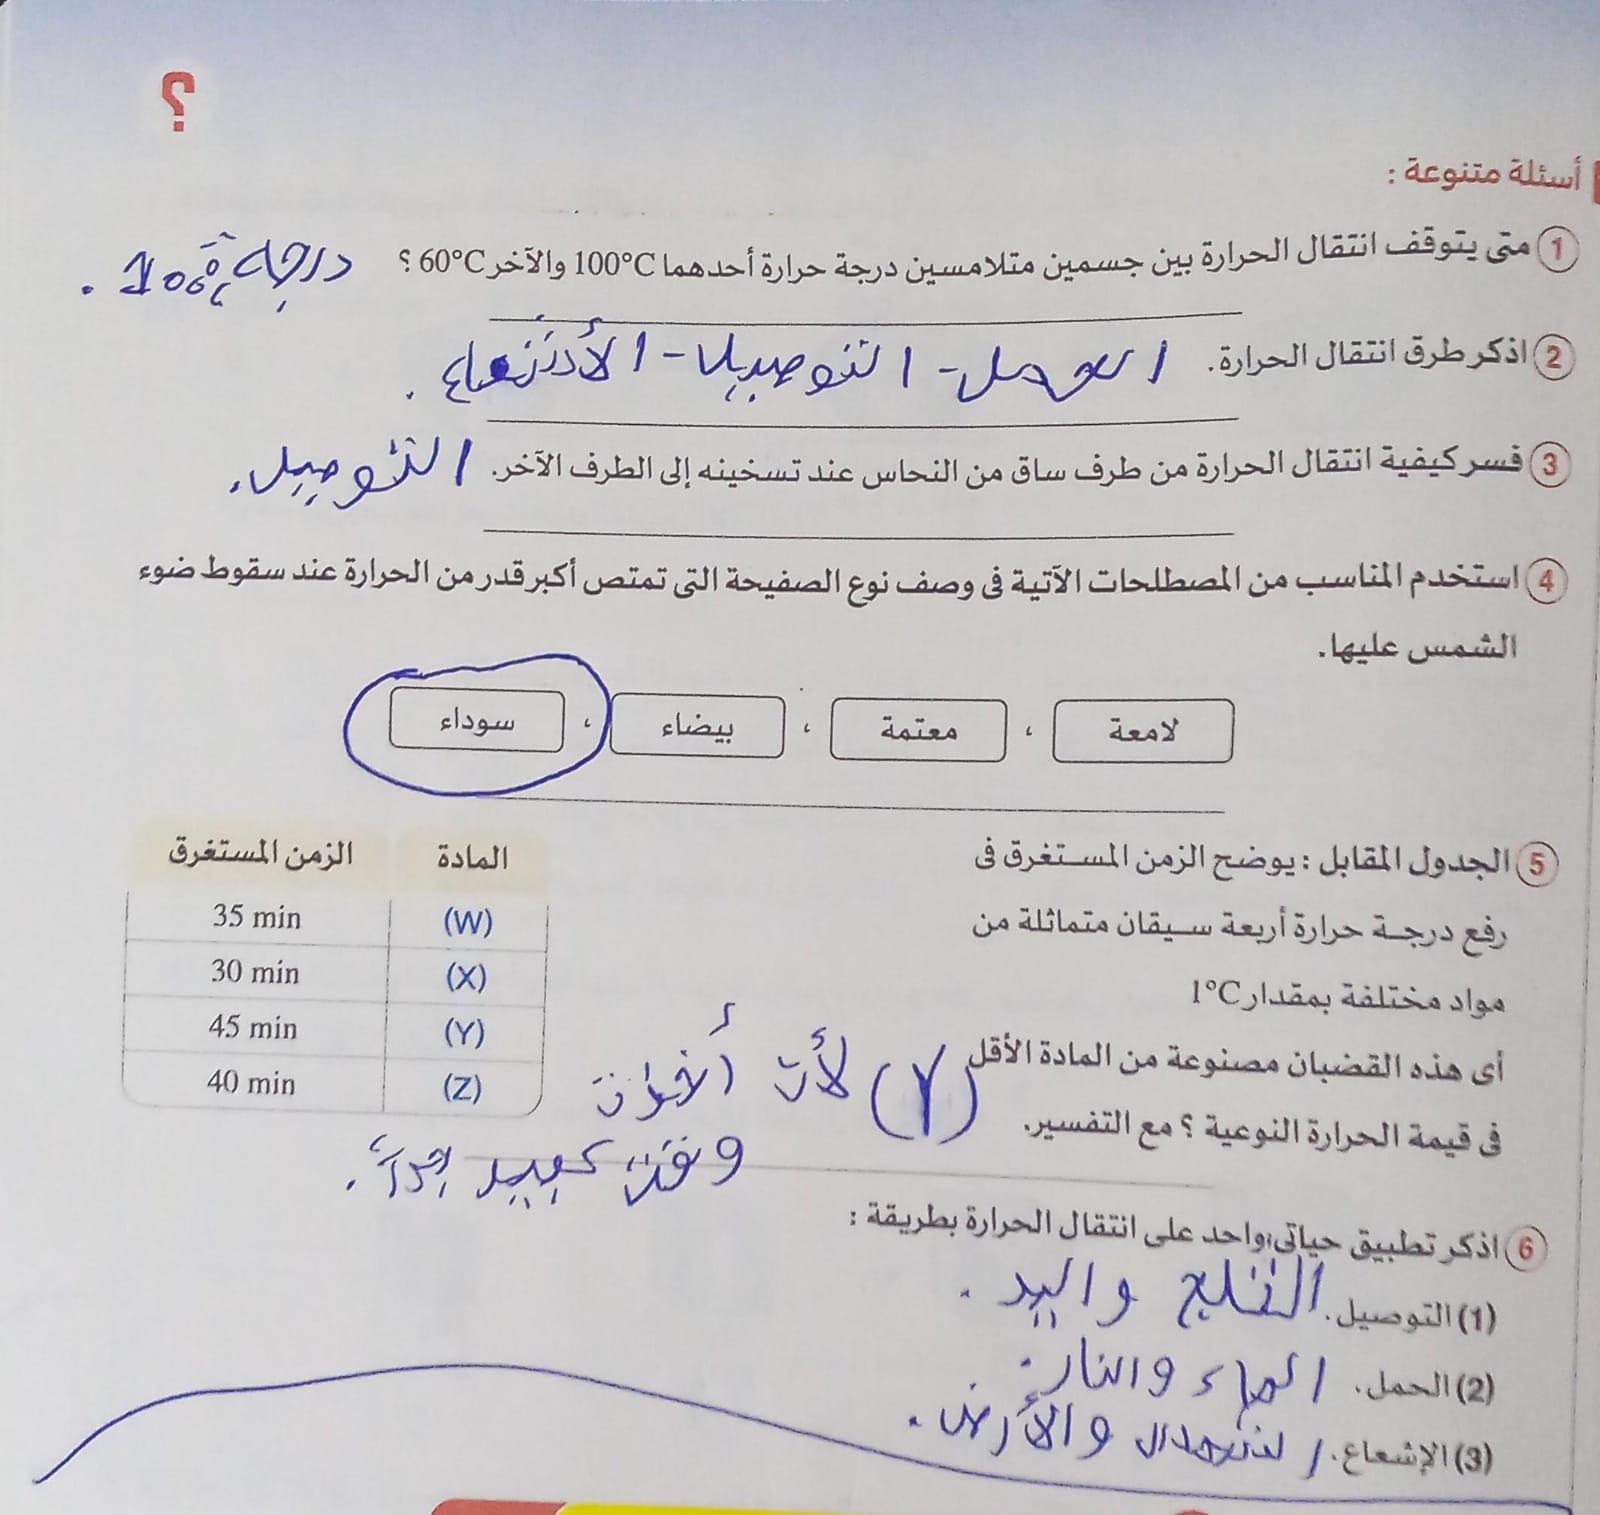 ؟
أسئلة متنوعة :
1 متى يتوقف انتقال الحرارة بين جسمين متلامسين درجة حرارة أحدهما 100°C والآخر 60°C ؟ درجة 100
2 اذكر طرق انتقال الحرارة. الحمل - التوصيل - الأشعاع .
3 فسر كيفية انتقال الحرارة من طرف ساق من النحاس عند تسخينه إلى الطرف الآخر. التوصيل .
4 استخدم المناسب من المصطلحات الآتية فى وصف نوع الصفيحة التى تمتص أكبر قدر من الحرارة عند سقوط ضوء
الشمس عليها.
لامعة ، معتمة ، بيضاء ، سوداء
5 الجدول المقابل : يوضح الزمن المستغرق فى
رفع درجة حرارة أربعة سيقان متماثلة من
مواد مختلفة بمقدار 1°C
أى هذه القضبان مصنوعة من المادة الأقل (Y) لأن أخذت
فى قيمة الحرارة النوعية ؟ مع التفسير.
وقت كبير جداً .
المادة الزمن المستغرق
(W) 35 min
(X) 30 min
(Y) 45 min
(Z) 40 min
6 اذكر تطبيق حياتى واحد على انتقال الحرارة بطريقة :
(1) التوصيل. الثلج واليد .
(2) الحمل. الماء والنار .
(3) الإشعاع. والأرض .